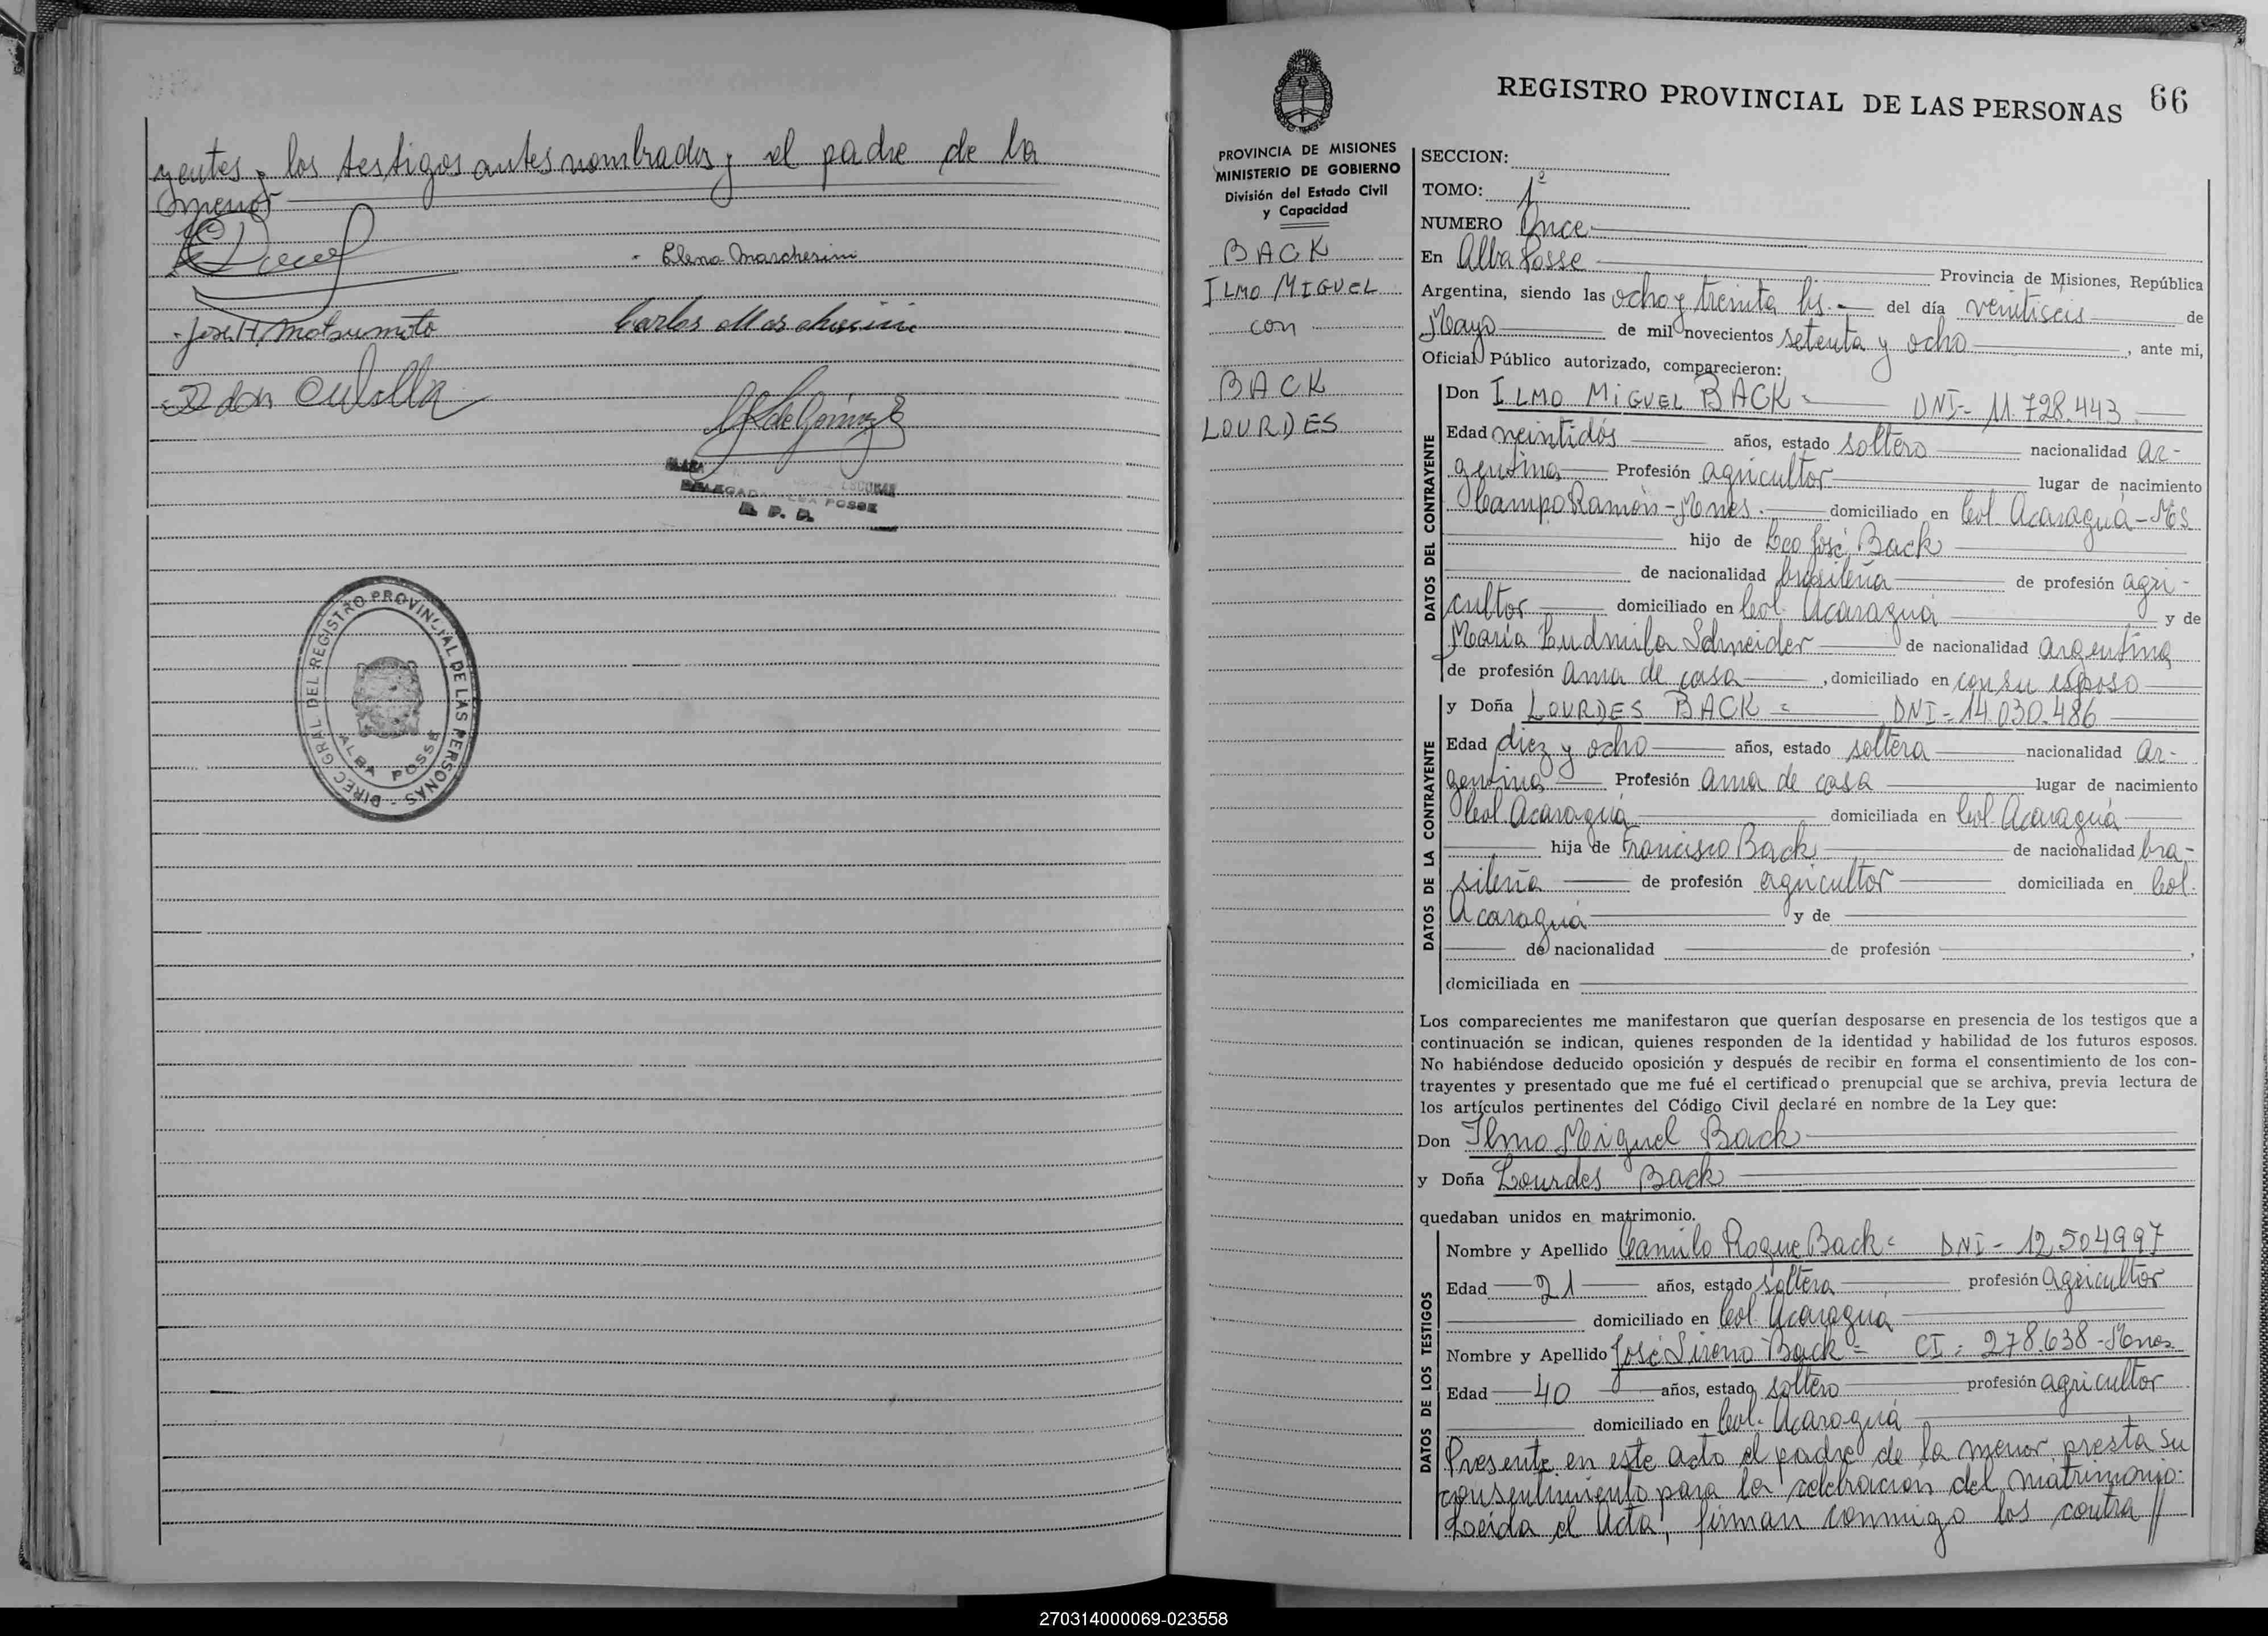 yentes y los testigos antes nombrados y el padre de la
menor
Elena Marchesini
Jose H. Matsumoto
Carlos Marchesini
DELEGADA ALBA POSSE
R. P. P.
DIREC GRAL DEL REGISTRO PROVINCIAL DE LAS PERSONAS -
ALBA POSSE
REGISTRO PROVINCIAL DE LAS PERSONAS 66
PROVINCIA DE MISIONES
MINISTERIO DE GOBIERNO
División del Estado Civil
y Capacidad
BACK
ILMO MIGUEL
con
BACK
LOURDES
SECCION:
TOMO: 1º
NUMERO Once
En Alba Posse Provincia de Misiones, República
Argentina, siendo las ocho y treinta hs - del día veintiseis de
Mayo de mil novecientos setenta y ocho, ante mi,
Oficial Público autorizado, comparecieron:
DATOS DEL CONTRAYENTE
Don ILMO MIGUEL BACK = DNI- 11.728.443
Edad veintidós años, estado soltero nacionalidad ar-
gentina Profesión agricultor lugar de nacimiento
Campo Ramón - Mnes. domiciliado en Col. Acaraguá - Ms
hijo de Leo José Back
de nacionalidad brasileña de profesión agri-
cultor domiciliado en Col. Acaraguá y de
María Ludmila Schneider de nacionalidad argentina
de profesión ama de casa, domiciliado en con su esposo
DATOS DE LA CONTRAYENTE
y Doña LOURDES BACK = DNI = 14.030.486
Edad diez y ocho años, estado soltera nacionalidad ar-
gentina Profesión ama de casa lugar de nacimiento
Col. Acaraguá domiciliada en Col. Acaraguá
hija de Francisco Back de nacionalidad bra-
sileña de profesión agricultor domiciliada en Col.
Acaraguá y de
de nacionalidad de profesión ,
domiciliada en
Los comparecientes me manifestaron que querían desposarse en presencia de los testigos que a
continuación se indican, quienes responden de la identidad y habilidad de los futuros esposos.
No habiéndose deducido oposición y después de recibir en forma el consentimiento de los con-
trayentes y presentado que me fué el certificado prenupcial que se archiva, previa lectura de
los artículos pertinentes del Código Civil declaré en nombre de la Ley que:
Don Ilmo Miguel Back
y Doña Lourdes Back
quedaban unidos en matrimonio.
DATOS DE LOS TESTIGOS
Nombre y Apellido Camilo Roque Back = DNI - 12.504997
Edad 21 años, estado soltera profesión agricultor
domiciliado en Col. Acaragua
Nombre y Apellido José Sireno Back = CI = 278.638 - Mnes
Edad 40 años, estado soltero profesión agricultor
domiciliado en Col. Acaraguá
Presente en este acto el padre de la menor presta su
consentimiento para la celebracion del matrimonio.
Leída el acta, firman conmigo los contra //
270314000069-023558